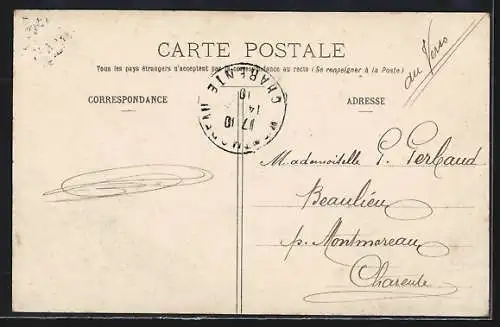 CARTE POSTALE
Tous les pays étrangers n'acceptent pas la correspondance au recto (Se renseigner à la Poste)
au Verso
CORRESPONDANCE
ADRESSE
CHARENTE
17 10
14
10
Mademoiselle G. Gerbaud
Beaulieu
p. Montmoreau
Charente